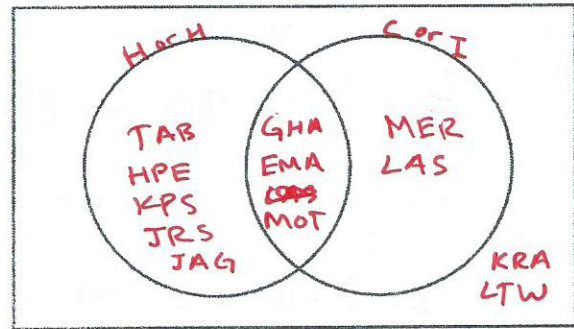 H or H
C or I
TAB
HPE
KPS
JRS
JAG
GHA
EMA
MOT
MER
LAS
KRA
LTW